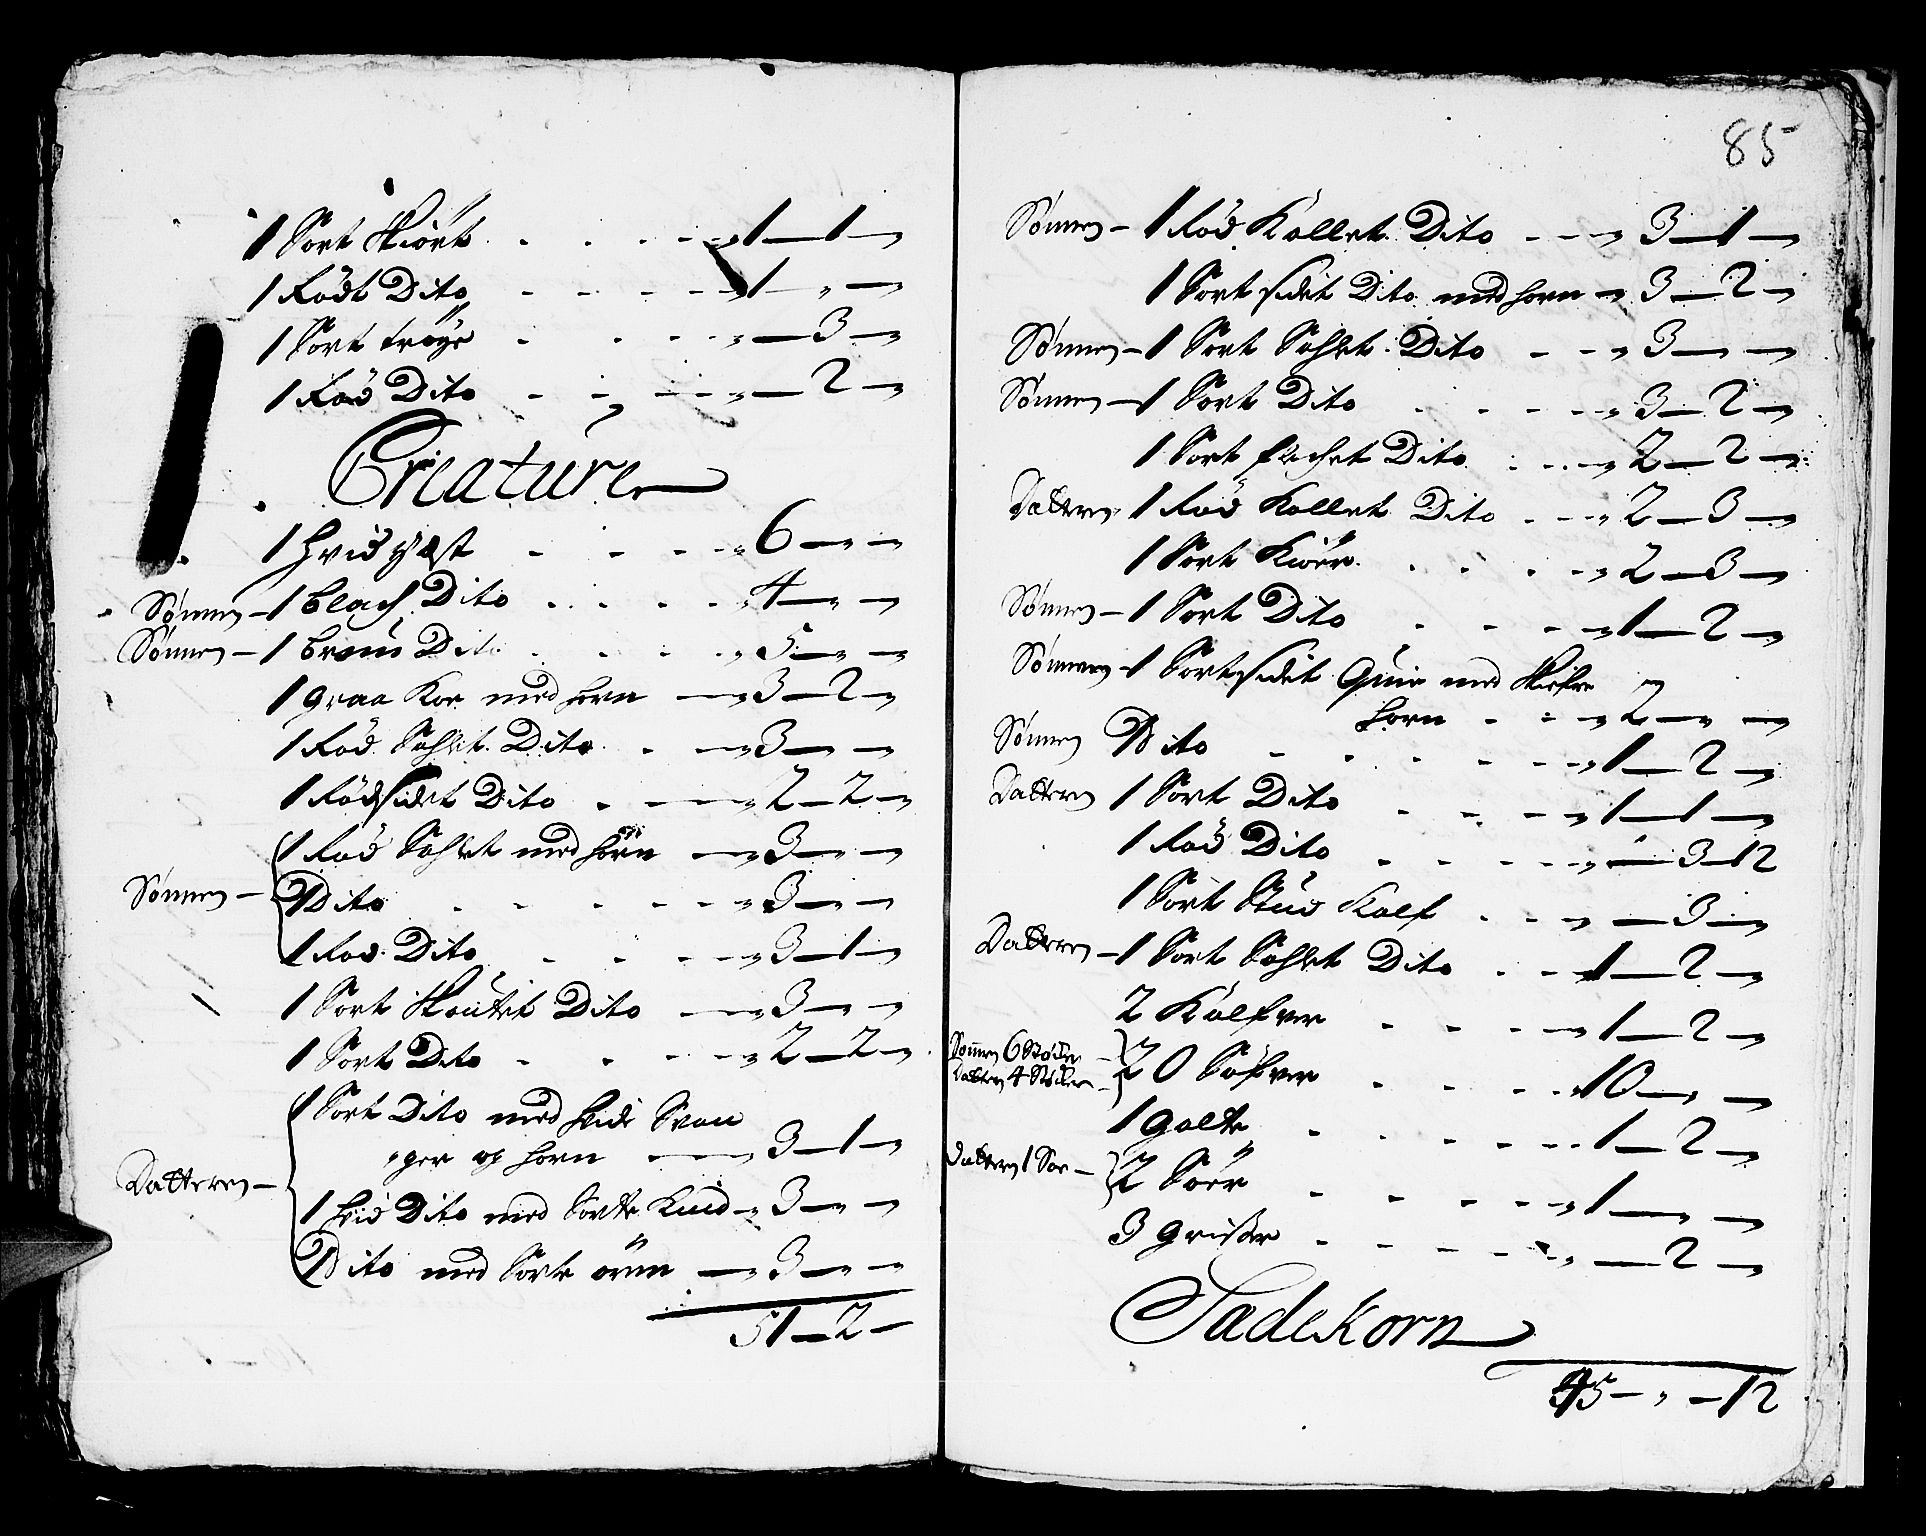 1 Sort Skiört - - - - „ 1 — 1 — „
1 Rödt Dito - - - - „ 1 — „ — „
1 Sort trøye - - - - „ — 3 — „
1 Röd Dito - - - - „ — 2 — „
Creature
1 hvid hæst - - - - „ 6 — „ — „
Sønnen — 1 black Dito - - - - „ 4 — „ — „
Sønnen — 1 brun Dito - - - - „ 5 — „ — „
1 graa Koe med horn — „ 3 — 2 — „
1 Rød Dito - — „ 3 — „ — „
1 Rödsidet Dito - — „ 2 — 2 — „
1 Rød med horn — „ 3 — „ — „
Sønnen — 1 Dito - - - - - „ 3 — „ — „
1 Rød Dito - - - - „ 3 — 1 — „
1 Sort Dito — „ 3 — „ — „
1 Sort Dito - - - - „ 2 — 2 — „
1 Sort Dito med hvide Svan
„ger og horn — „ 3 — 1 — „
Datteren —
1 hvid Dito med Sorte Kind — „ 3 — „ — „
1 Dito med Sorte ören — „ 3 — „ — „
51 — 2 —
85
Sønnen — 1 Rød Kollet Dito - - - „ 3 — 1 — „
1 Sortsidet Dito med horn — „ 3 — 2 — „
Sønnen — 1 Sort Dito - - „ 3 — „ — „
Sønnen — 1 Sort Dito - - - - „ 3 — 2 — „
1 Sort Dito - - - „ 2 — 2 — „
Datteren 1 Rød Kollet Dito - - - „ 2 — 3 — „
1 Sort Kiöer - - - - „ 2 — 3 — „
Sønnen — 1 Sort Dito - - - - „ 1 — 2 — „
Sønnen — 1 Sortsidet Qvie med
horn - - „ 2 — „ — „
Sønnen 1 Dito - - - - - „ 1 — 2 — „
Datteren 1 Sort Dito - - - - „ 1 — 1 — „
1 Röd Dito - - - - „ — 3 — 12
1 Sort Stud Kalf - - - „ — 3 — „
Datteren — 1 Sort Dito - - - „ 1 — 2 — „
2 Kalfver - - - - „ 1 — 2 — „
Sønnen 6 Støcker
Datteren 4 Støcker
20 - - - - 10 — „ — „
1 galte - - - - - 1 — 2 — „
Datteren 1 Soe — 2 Söer - - - - „ 1 — „ — „
3 griser - - - - - „ — 2 — „
SædeKorn
45 — „ — 12